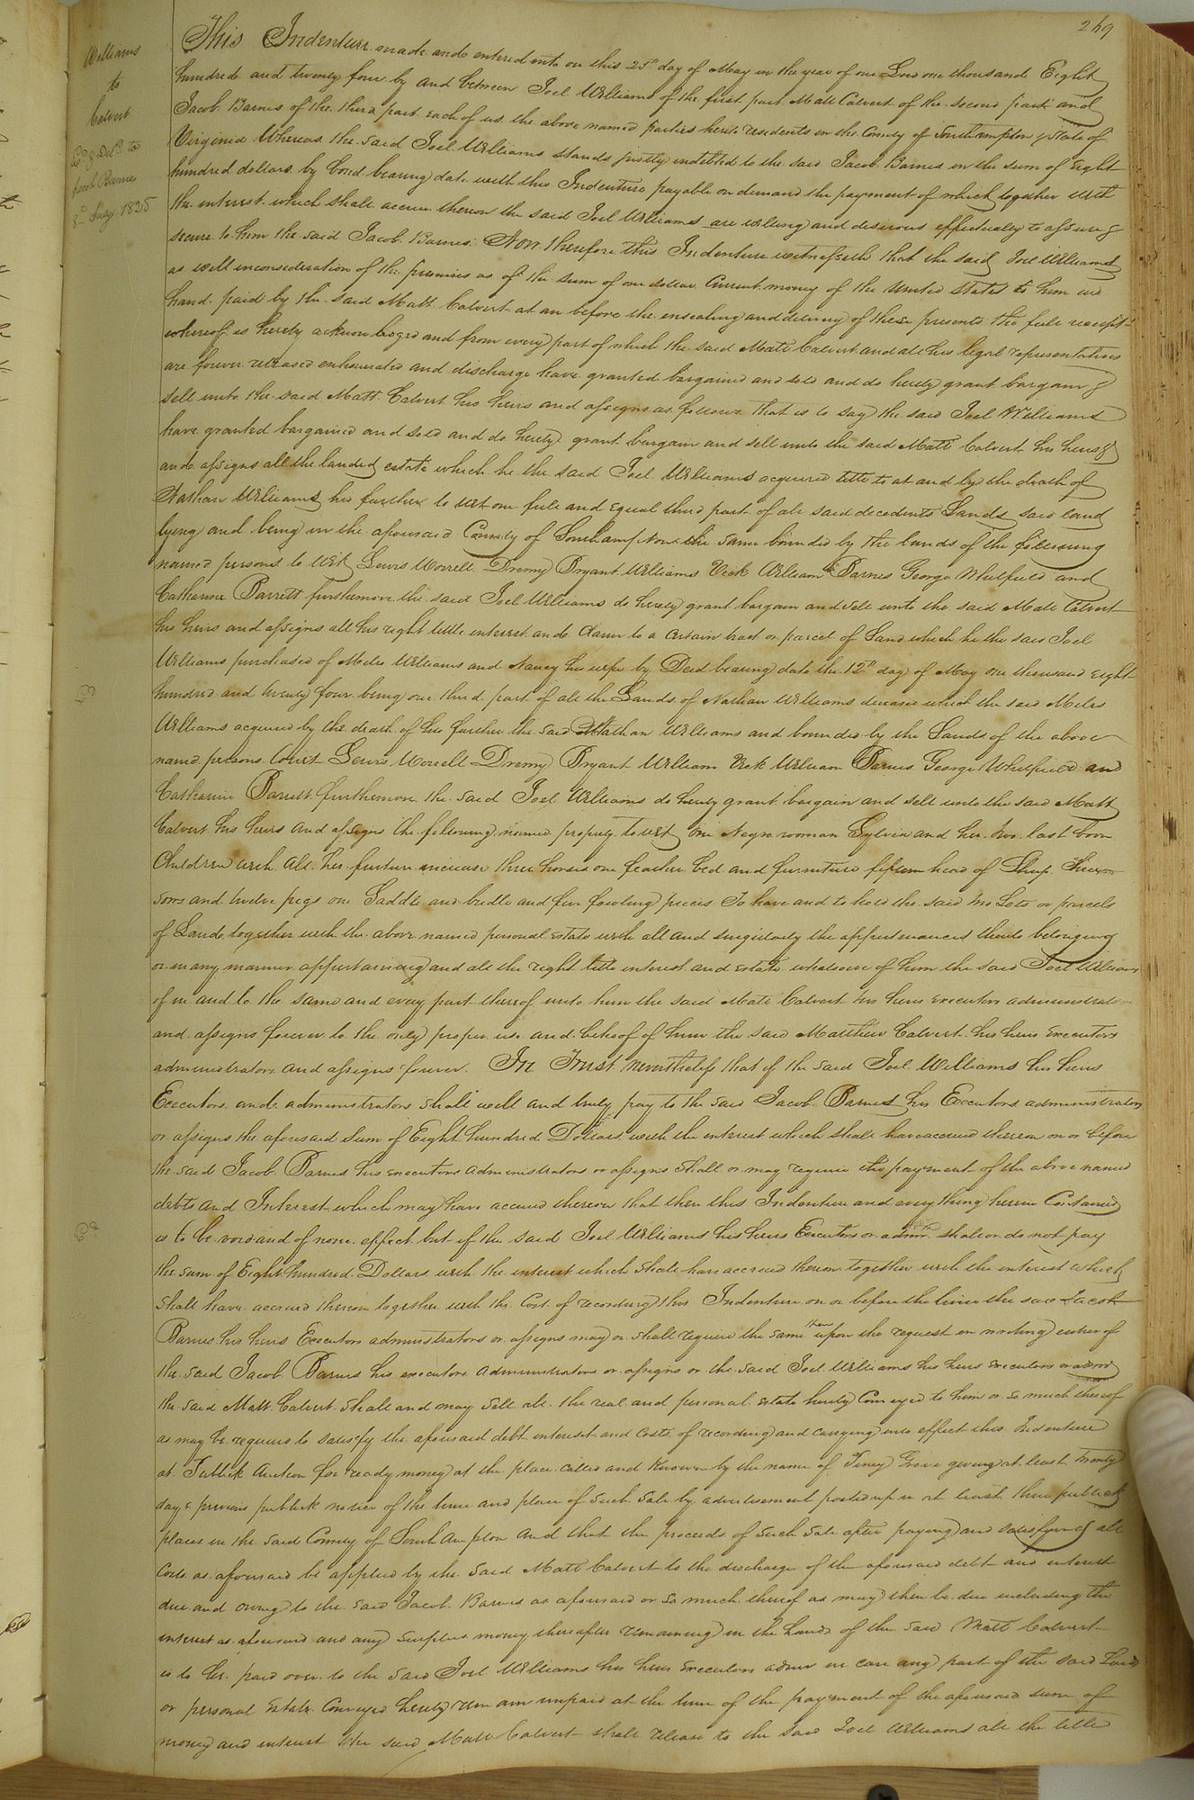 269
Williams
to
Calvert
Ex.d & Del.d to
Jacob Barnes
July 1825
This Indenture made and entered into on this 25th day of May in the year of our Lord one thousand Eight
hundred and twenty four by and between Joel Williams of the first part Matt Calvert of the second part and
Jacob Barnes of the third part each of us the above named parties hereto residents in the County of Southampton & State of
Virginia Whereas the said Joel Williams stands justly indebted to the said Jacob Barnes in the sum of Eight
hundred dollars by bond bearing date with this Indenture payable on demand the payment of which together with
the interest which shall accrue thereon the said Joel Williams are willing and desirous effectually to assure &
secure to him the said Jacob Barnes. Now therefore this Indenture witnesseth that the said Joel Williams
as well inconsideration of the premises as of the sum of one dollar Current money of the United States to him in
hand paid by the said Matt Calvert at an before the ensealing and delivery of these presents the full receipt
whereof is hereby acknowledged and from every part of which the said Matt Calvert and all his legal representatives
are forever released exhonerated and discharge have granted bargained and sold and do hereby grant bargain &
sell unto the said Matt Calvert his heirs and assigns as follows that is to say the said Joel Williams
have granted bargained and sold and do hereby grant bargain and sell unto the said Matt Calvert his heirs &
and assigns all the landed estate which he the said Joel Williams acquired title to at and by the death of
Nathan Williams his farther to wit one full and equal third part of all said decedents Lands said land
lying and being in the aforesaid County of Southampton the same bounded by the lands of the following
named persons to wit Lewis Worrell Drewry Bryant Williams Vick William Barnes George Whitfield and
Catharine Barrett furthermore the said Joel Williams do hereby grant bargain and sell unto the said Matt Calvert
his heirs and assigns all his right title interest and Claim to a certain tract or parcel of Land which he the said Joel
Williams purchased of Miles Williams and Nancy his wife by Deed bearing date the 12th day of May one thousand eight
hundred and twenty four being one third part of all the Lands of Nathan Williams deceased which the said Miles
Williams acquired by the death of his farther the said Nathan Williams and bounded by the Lands of the above
named persons towit Lewis Worrell Drewry Bryant William Vick William Barnes George Whitfield and
Catharine Barrett furthermore the said Joel Williams do hereby grant bargain and sell unto the said Matt
Calvert his heirs and assigns the following named property to wit one Negro woman Sylvia and her two last born
Children with all her future increase three horses one feather bed and furniture fifteen head of Sheep
sows and twelve pigs one Saddle and bridle and fowling pieces To have and to hold the said two Lots or parcels
of Land together with the above named personal estate with all and singularly the appurtenances thereto belonging
or in any manner appertaining and all the right title interest and estate whatsoever of him the said Joel Williams
of in and to the same and every part thereof unto him the said Matt Calvert his heirs executors administrators
and assigns forever to the only proper use and behoof of him the said Matthew Calvert his heirs executors
administrators and assigns forever. In Trust nevertheless that if the said Joel Williams his heirs
Executors and administrators shall well and truly pay to the said Jacob Barnes his Executors administrators
or assigns the aforesaid Sum of Eight hundred Dollars with the interest which shall have accrued thereon on or before
the said Jacob Barnes his executors administrators or assigns shall or may require the payment of the above named
debts and Interest which may have accrued thereon that then this Indenture and everything herein Contained
is to be void and of none effect but if the said Joel Williams his heirs Executors or admr. shall or do not pay
the sum of Eight hundred Dollars with the interest which shall have accrued thereon together with the interest which
shall have accrued thereon together with the Cost of recording this Indenture on or before the time the said Jacob
Barnes his heirs Executors administrators or assigns may or shall require the same then upon the request in writing either of
the said Jacob Barnes his executors administrators or assigns or the said Joel Williams his heirs executors or admr
the said Matt Calvert shall and may sell all the real and personal estate hereby Conveyed to him or so much thereof
as may be required to satisfy the aforesaid debt interest and Costs of recording and carrying into effect this Indenture
at Publick Auction for ready money at the place called and known by the name of Piney Grove giving at least twenty
days previous publick notice of the time and place of such sale by advertisement posted up in at least three publick
places in the said County of Southampton and that the proceeds of such sale after paying and satisfying all
Costs as aforesaid be applied by the said Matt Calvert to the discharge of the aforesaid debt and interest
due and owing to the said Jacob Barnes as aforesaid or so much thereof as may then be due including the
interest as aforesaid and any surplus money thereafter remaining in the hands of the said Matt Calvert
is to be paid over to the said Joel Williams his heirs executors admr in case any part of the said Land
or personal Estate Conveyed hereby remain unpaid at the time of the payment of the aforesaid sum of
money and interest the said Matt Calvert shall release to the said Joel Williams all the title